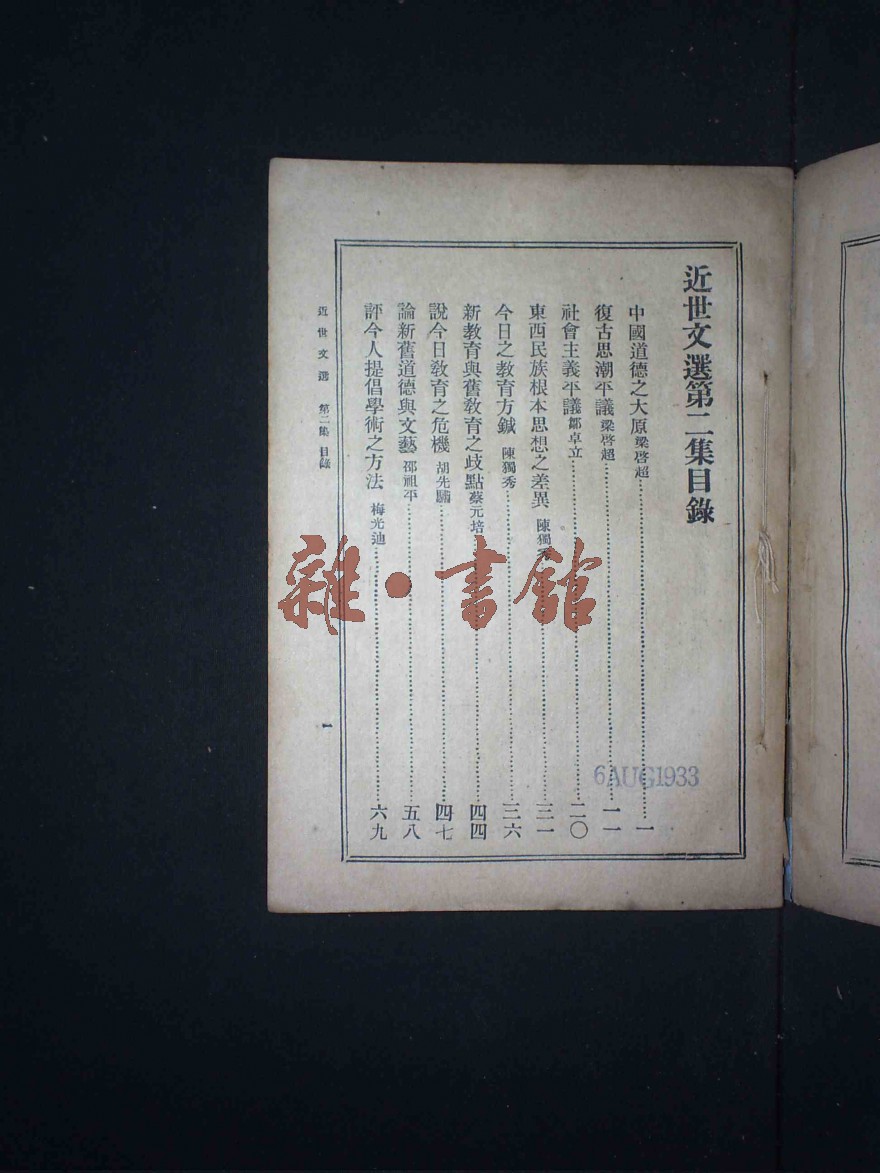 近世文選第二集目錄
中國道德之大原 梁啓超……一
復古思潮平議 梁啓超……一一
社會主義平議 鄒卓立……二〇
東西民族根本思想之差異 陳獨秀……三一
今日之教育方鍼 陳獨秀……三六
新教育與舊敎育之歧點 蔡元培……四四
說今日敎育之危機 胡先驌……四七
論新舊道德與文藝 邵祖平……五八
評今人提倡學術之方法 梅光迪……六九
近世文選 第二集 目錄 一
6 AUG 1933
雜·書館